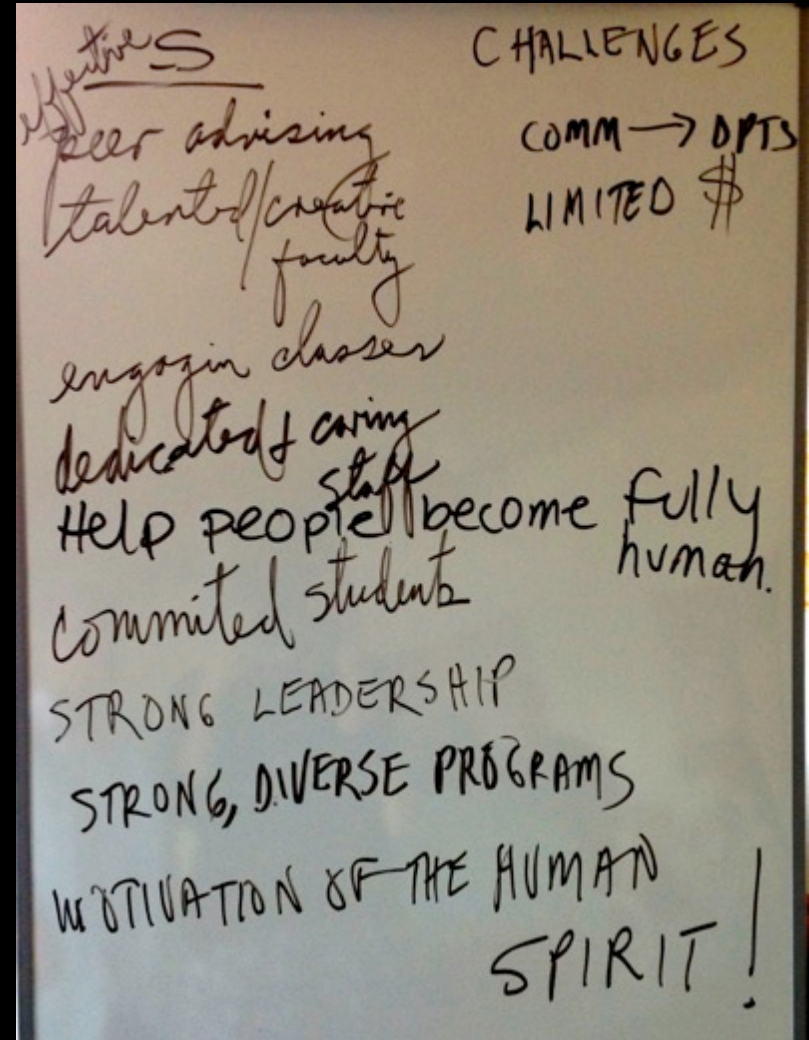 S
effective
peer advising
talented/creative
faculty
engagin classes
dedicated & caring
staff
Help people become fully
human.
commited students
STRONG LEADERSHIP
STRONG, DIVERSE PROGRAMS
MOTIVATION OF THE HUMAN
SPIRIT!
CHALLENGES
COMM → DPTS
LIMITED $